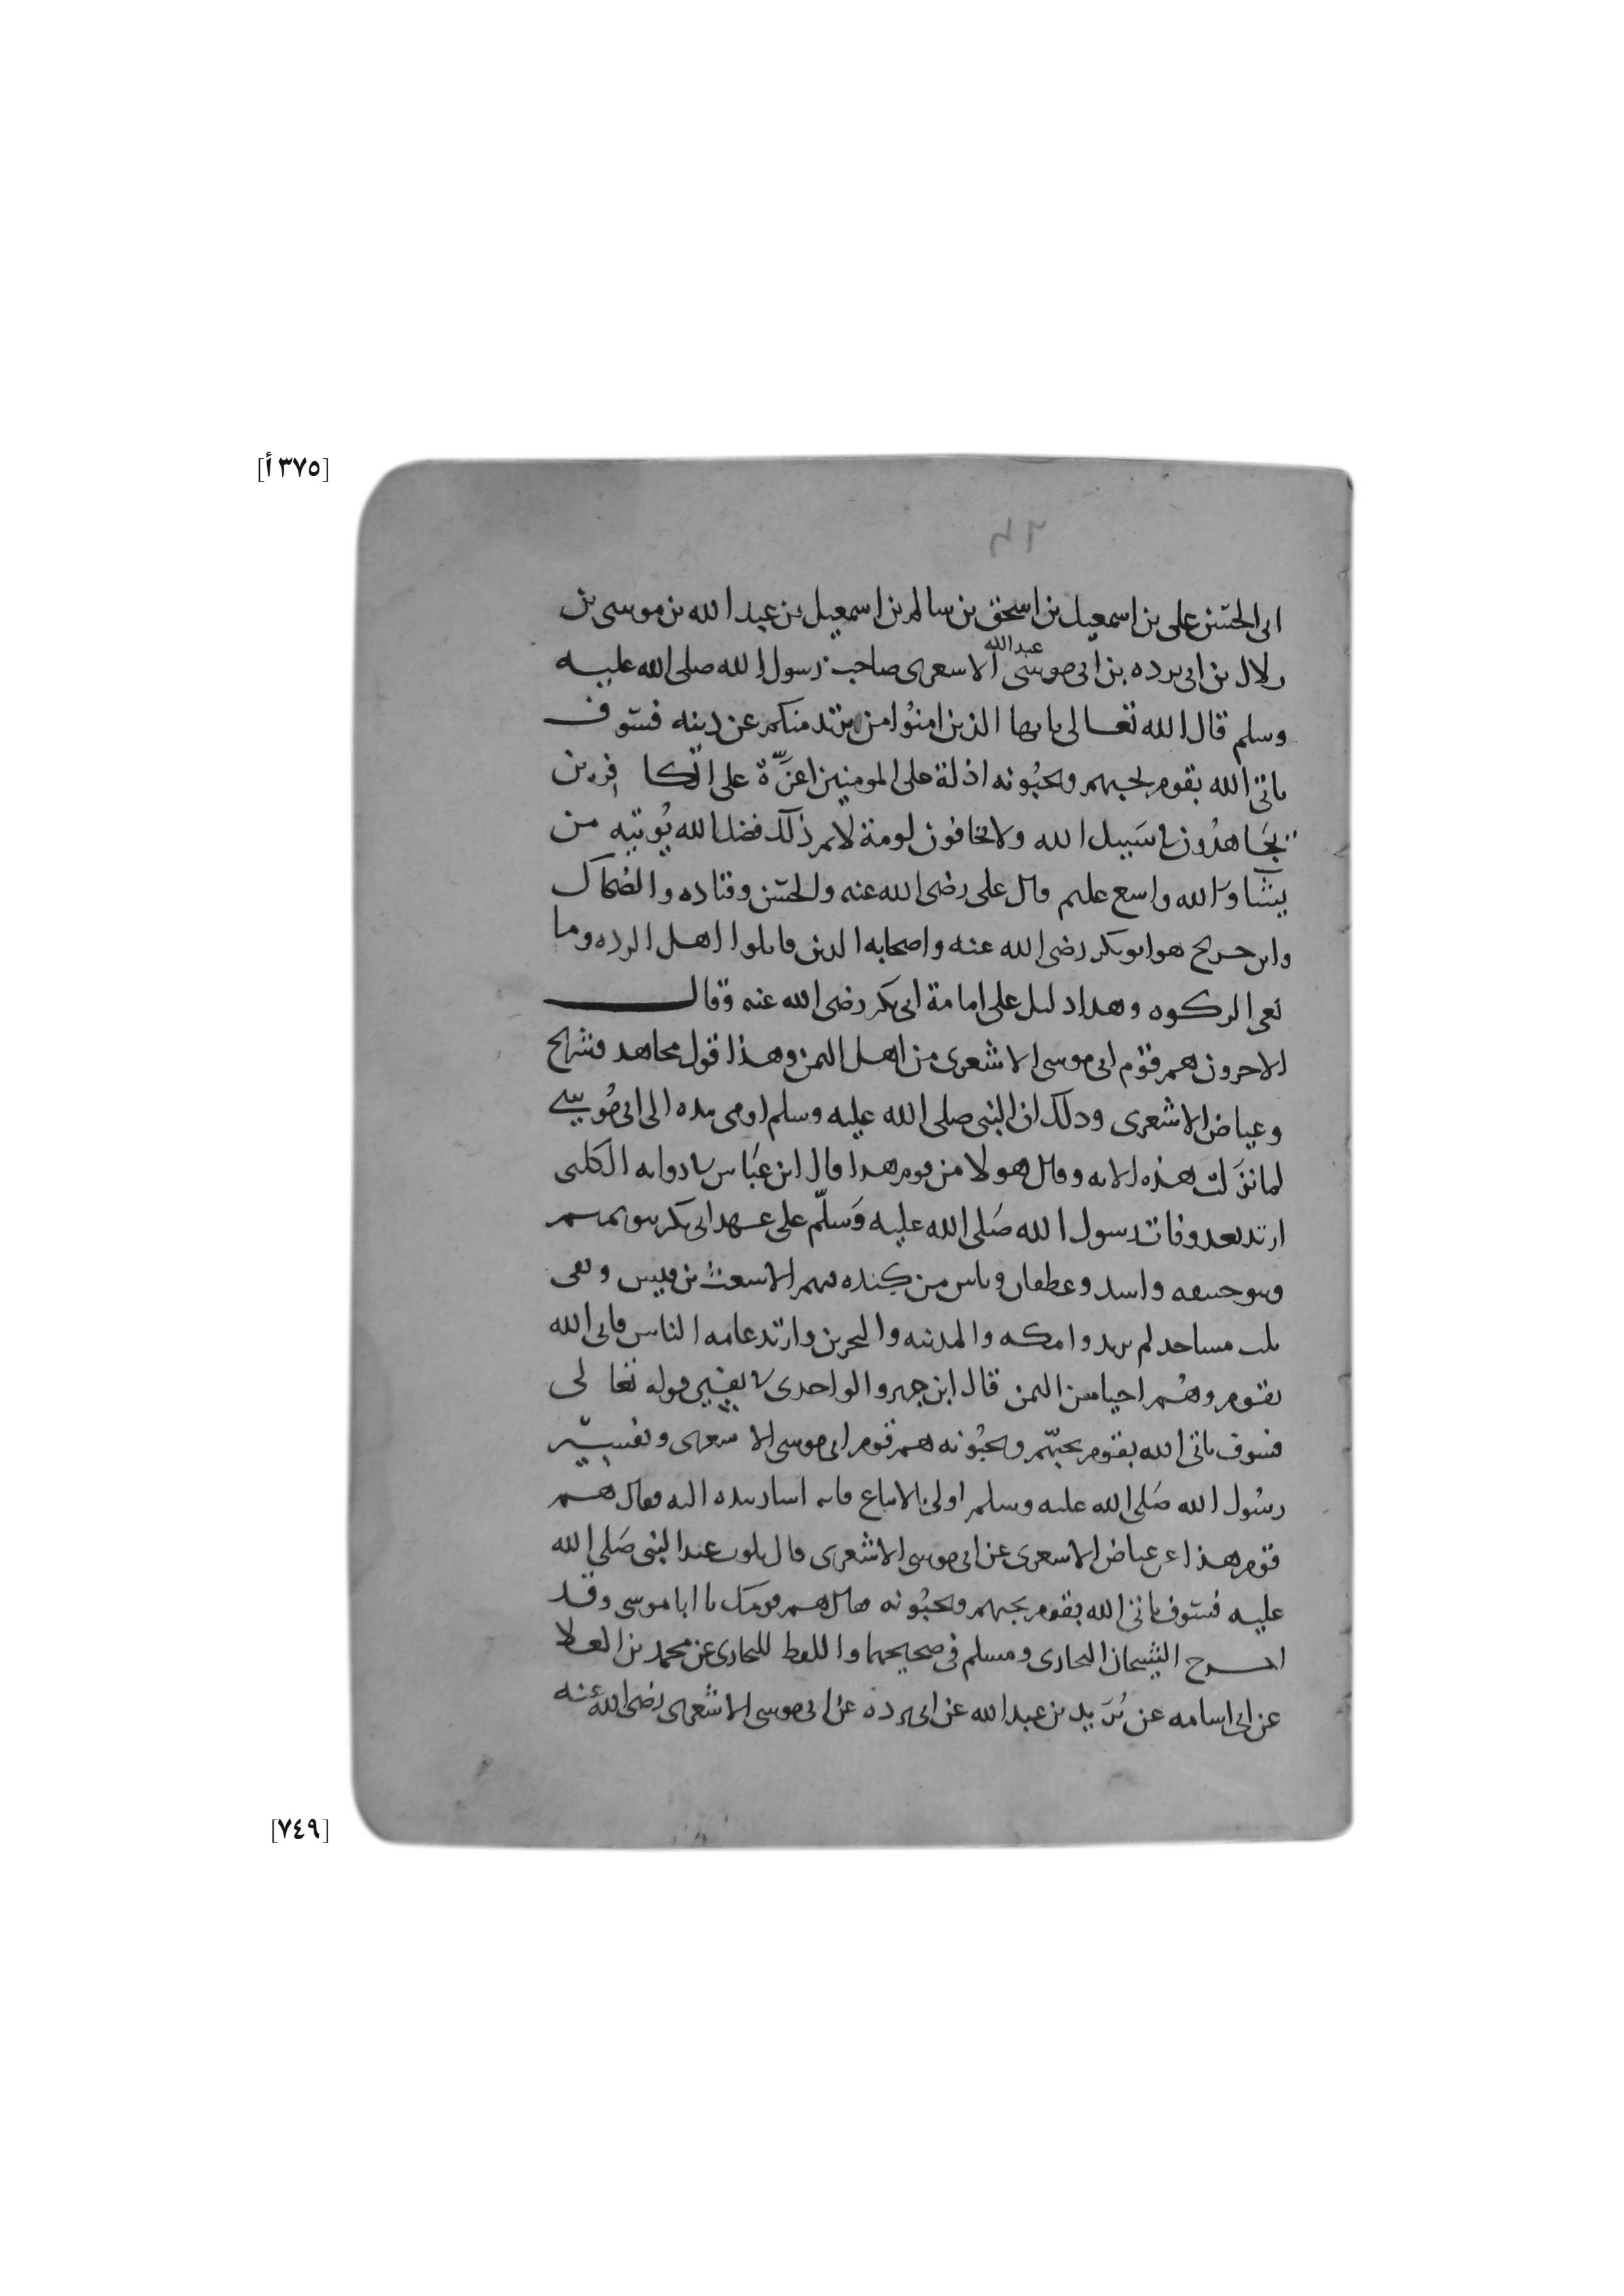 [٣٧٥ أ]
ابى الحسن على بن اسمعيل بن اسحق بن سالم بن اسمعيل بن عبد الله بن موسى بن
بلال بن ابى برده بن ابى موسى عبد الله الاسعرى صاحب رسول الله صلى الله عليه
وسلم قال الله تعالى يايها الذين امنوا من يرتد منكم عن دينه فسوف
ياتى الله بقوم يحبهم ويحبونه اذلة على المومنين اعزة على الكافرين
يجاهدون فى سبيل الله ولا يخافون لومة لائم ذلك فضل الله يوتيه من
يشاء والله واسع عليم قال على رضى الله عنه والحسن وقتاده والضحاك
وابن جريج هو ابو بكر رضى الله عنه واصحابه الذين قاتلوا اهل الرده وما
نعى الزكوه وهذا دليل على امامة ابى بكر رضى الله عنه وقال
الاخرون هم قوم ابى موسى الاشعرى من اهل اليمن وهذا قول مجاهد وشريح
وعياض الاشعرى وذلك ان النبى صلى الله عليه وسلم اومى بيده الى ابى موسى
لما نزلت هذه الايه وقال هولا من قوم هذا قال ابن عباس فى روايه الكلبى
ارتد بعد وفاة رسول الله صلى الله عليه وسلم على عهد ابى بكر بنو تميم
وبنو حنيفه واسد وغطفان وناس من كنده منهم الاشعث بن قيس وبقى
ثلث مساجد لم يرتدوا مكه والمدينه والبحرين وارتد عامه الناس فاتى الله
بقوم وهم احيا من اليمن قال ابن جرير والواحدى فى تفسير قوله تعالى
فسوف ياتى الله بقوم يحبهم ويحبونه هم قوم ابى موسى الاشعرى وتفسير
رسول الله صلى الله عليه وسلم اولى بالاتباع فانه اشار بيده اليه وقال هم
قوم هذا عن عياض الاشعرى عن ابى موسى الاشعرى قال تلوت عند النبى صلى الله
عليه فسوف ياتى الله بقوم يحبهم ويحبونه فقال هم قومك يا ابا موسى وقد
اخرج الشيخان البخارى ومسلم فى صحيحهما واللفظ للبخارى عن محمد بن العلا
عن ابى اسامه عن بريد بن عبد الله عن ابى برده عن ابى موسى الاشعرى رضى الله عنه
[٧٤٩]